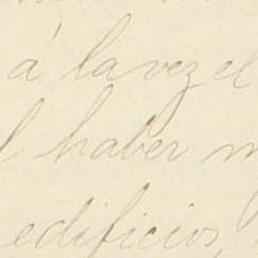 á la vez el
haber
edificios,